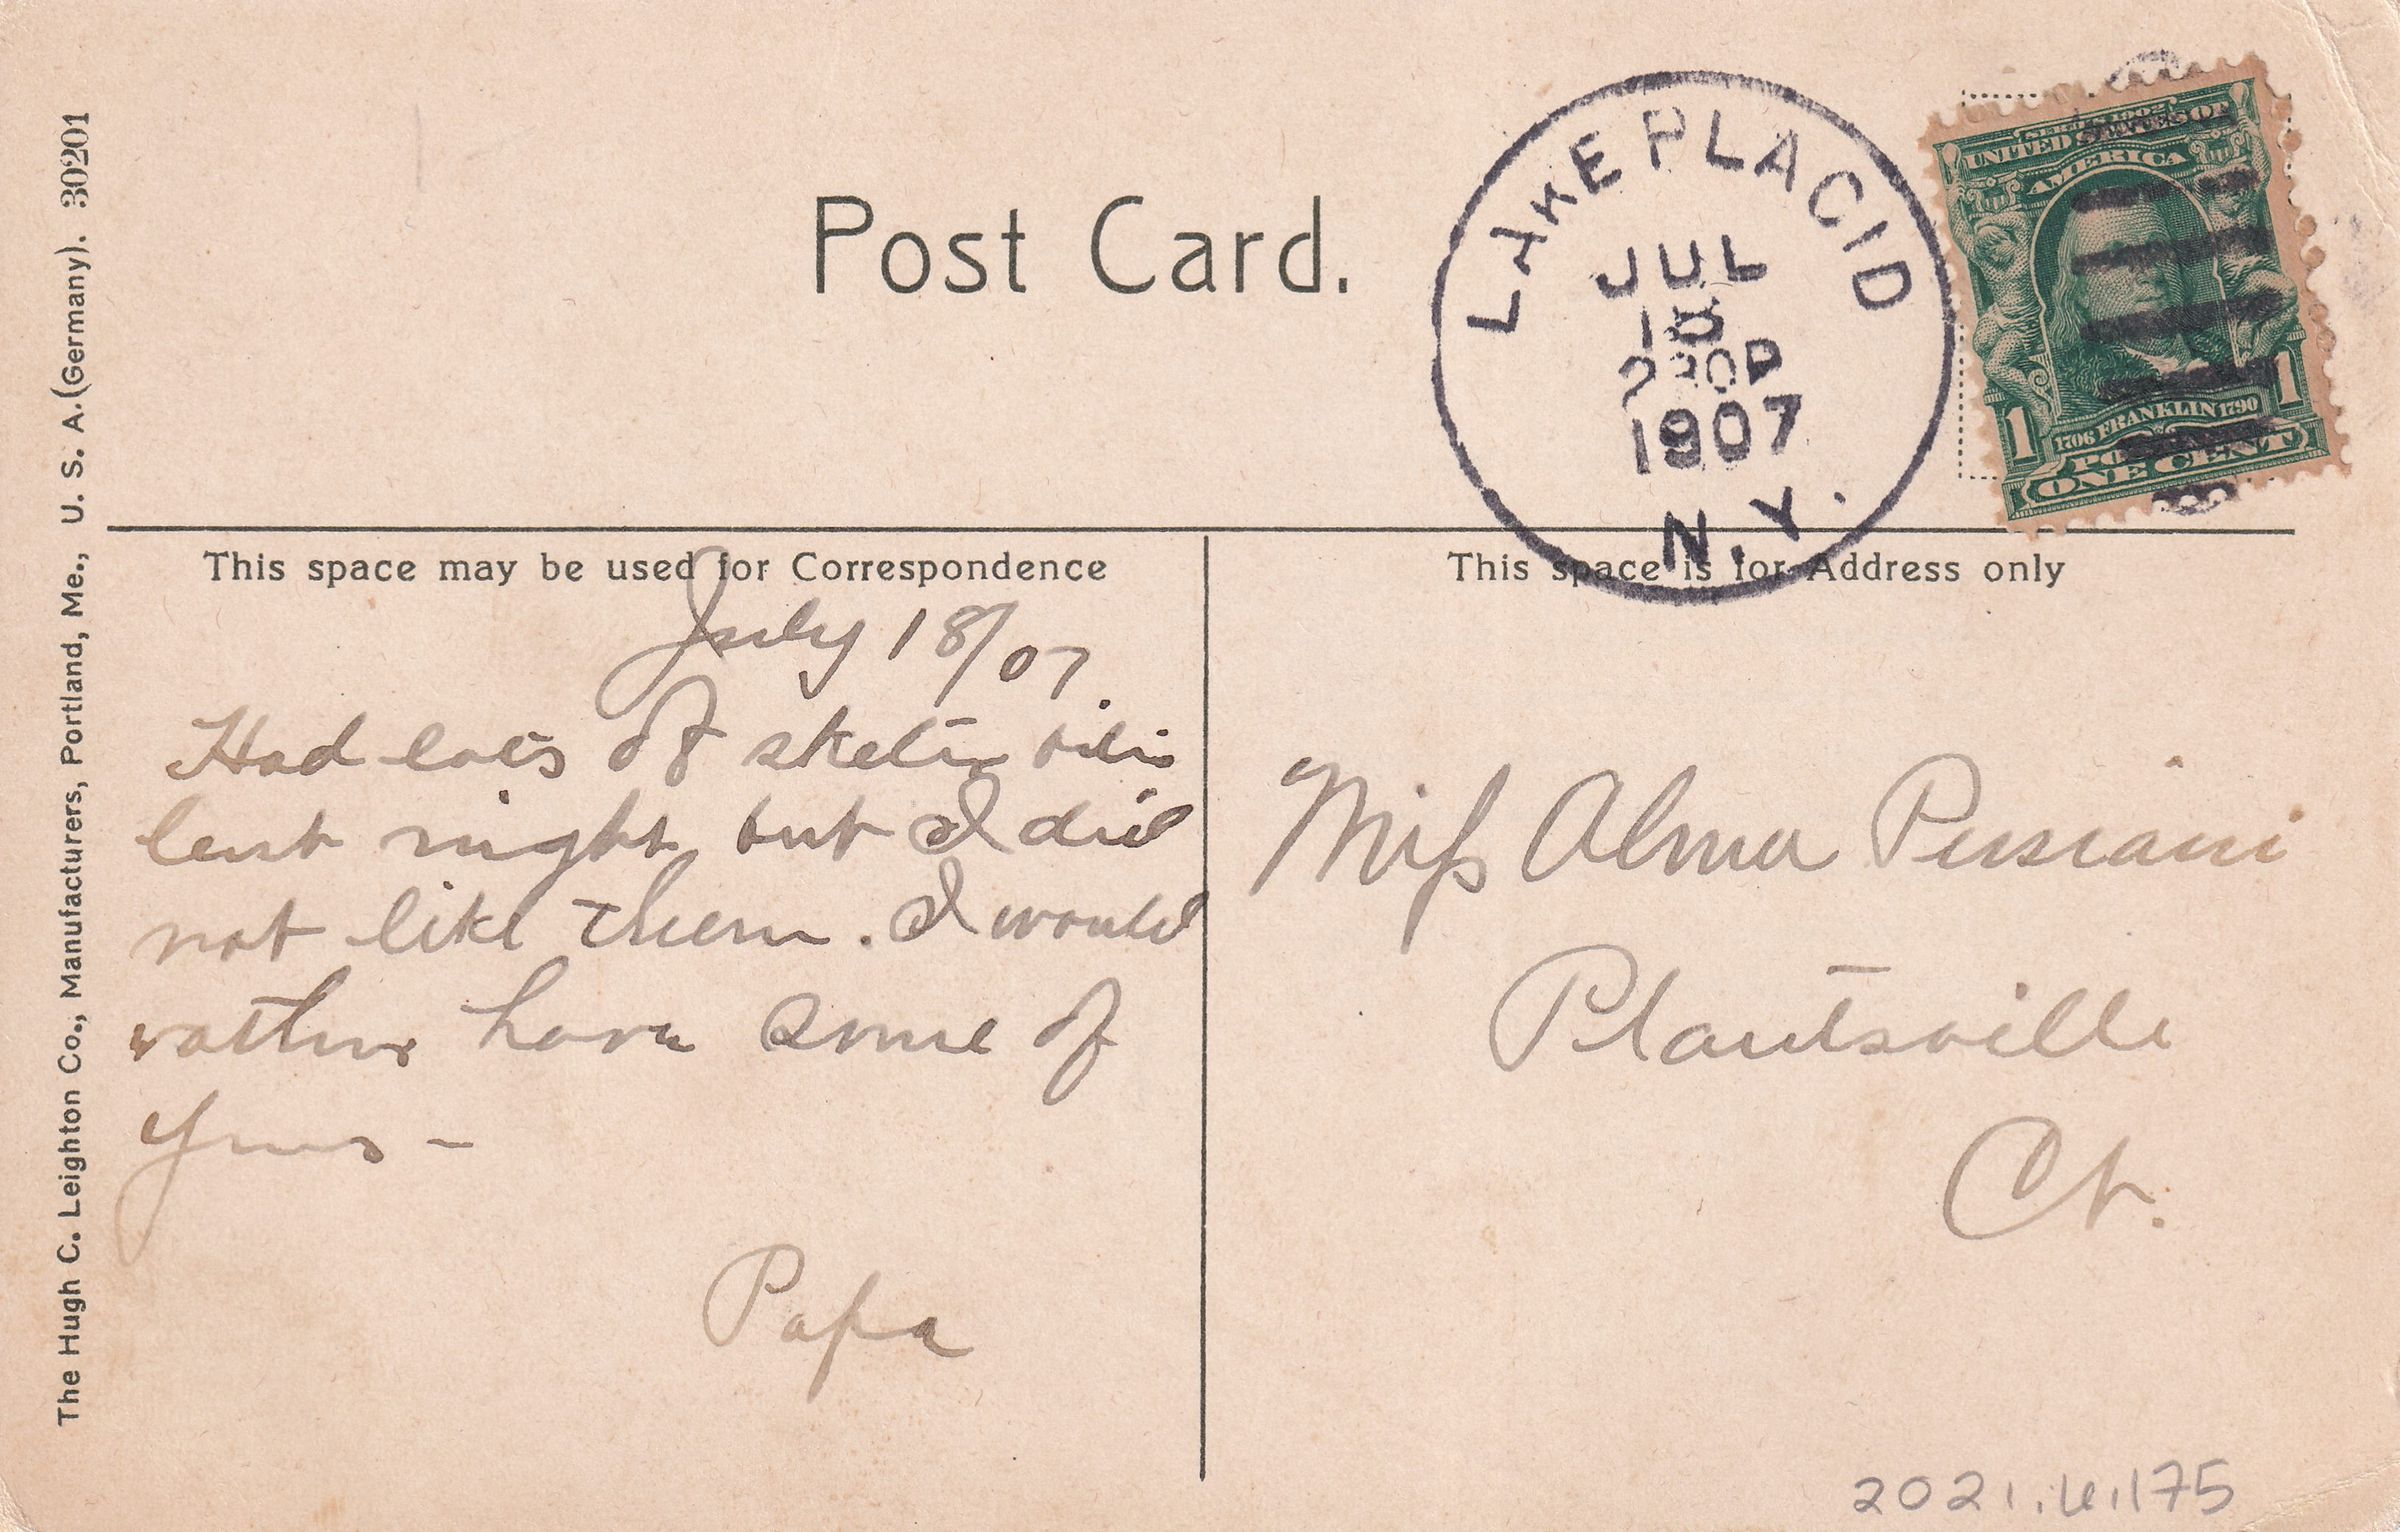 The Hugh C. Leighton Co., Manufacturers, Portland, Me., U. S. A. (Germany). 30201
Post Card.
LAKE PLACID
JUL
18
1907
N.Y.
SERIES 1902
UNITED STATES OF
AMERICA
1706 FRANKLIN 1790
1 1
ONE CENT
This space may be used for Correspondence
This space is for Address only
July 18/07
Had lots of
last night but I did
not like them. I would
rather have some of
yours -
Papa
Miss Alma
Plantsville
Ct.
2021.4.175